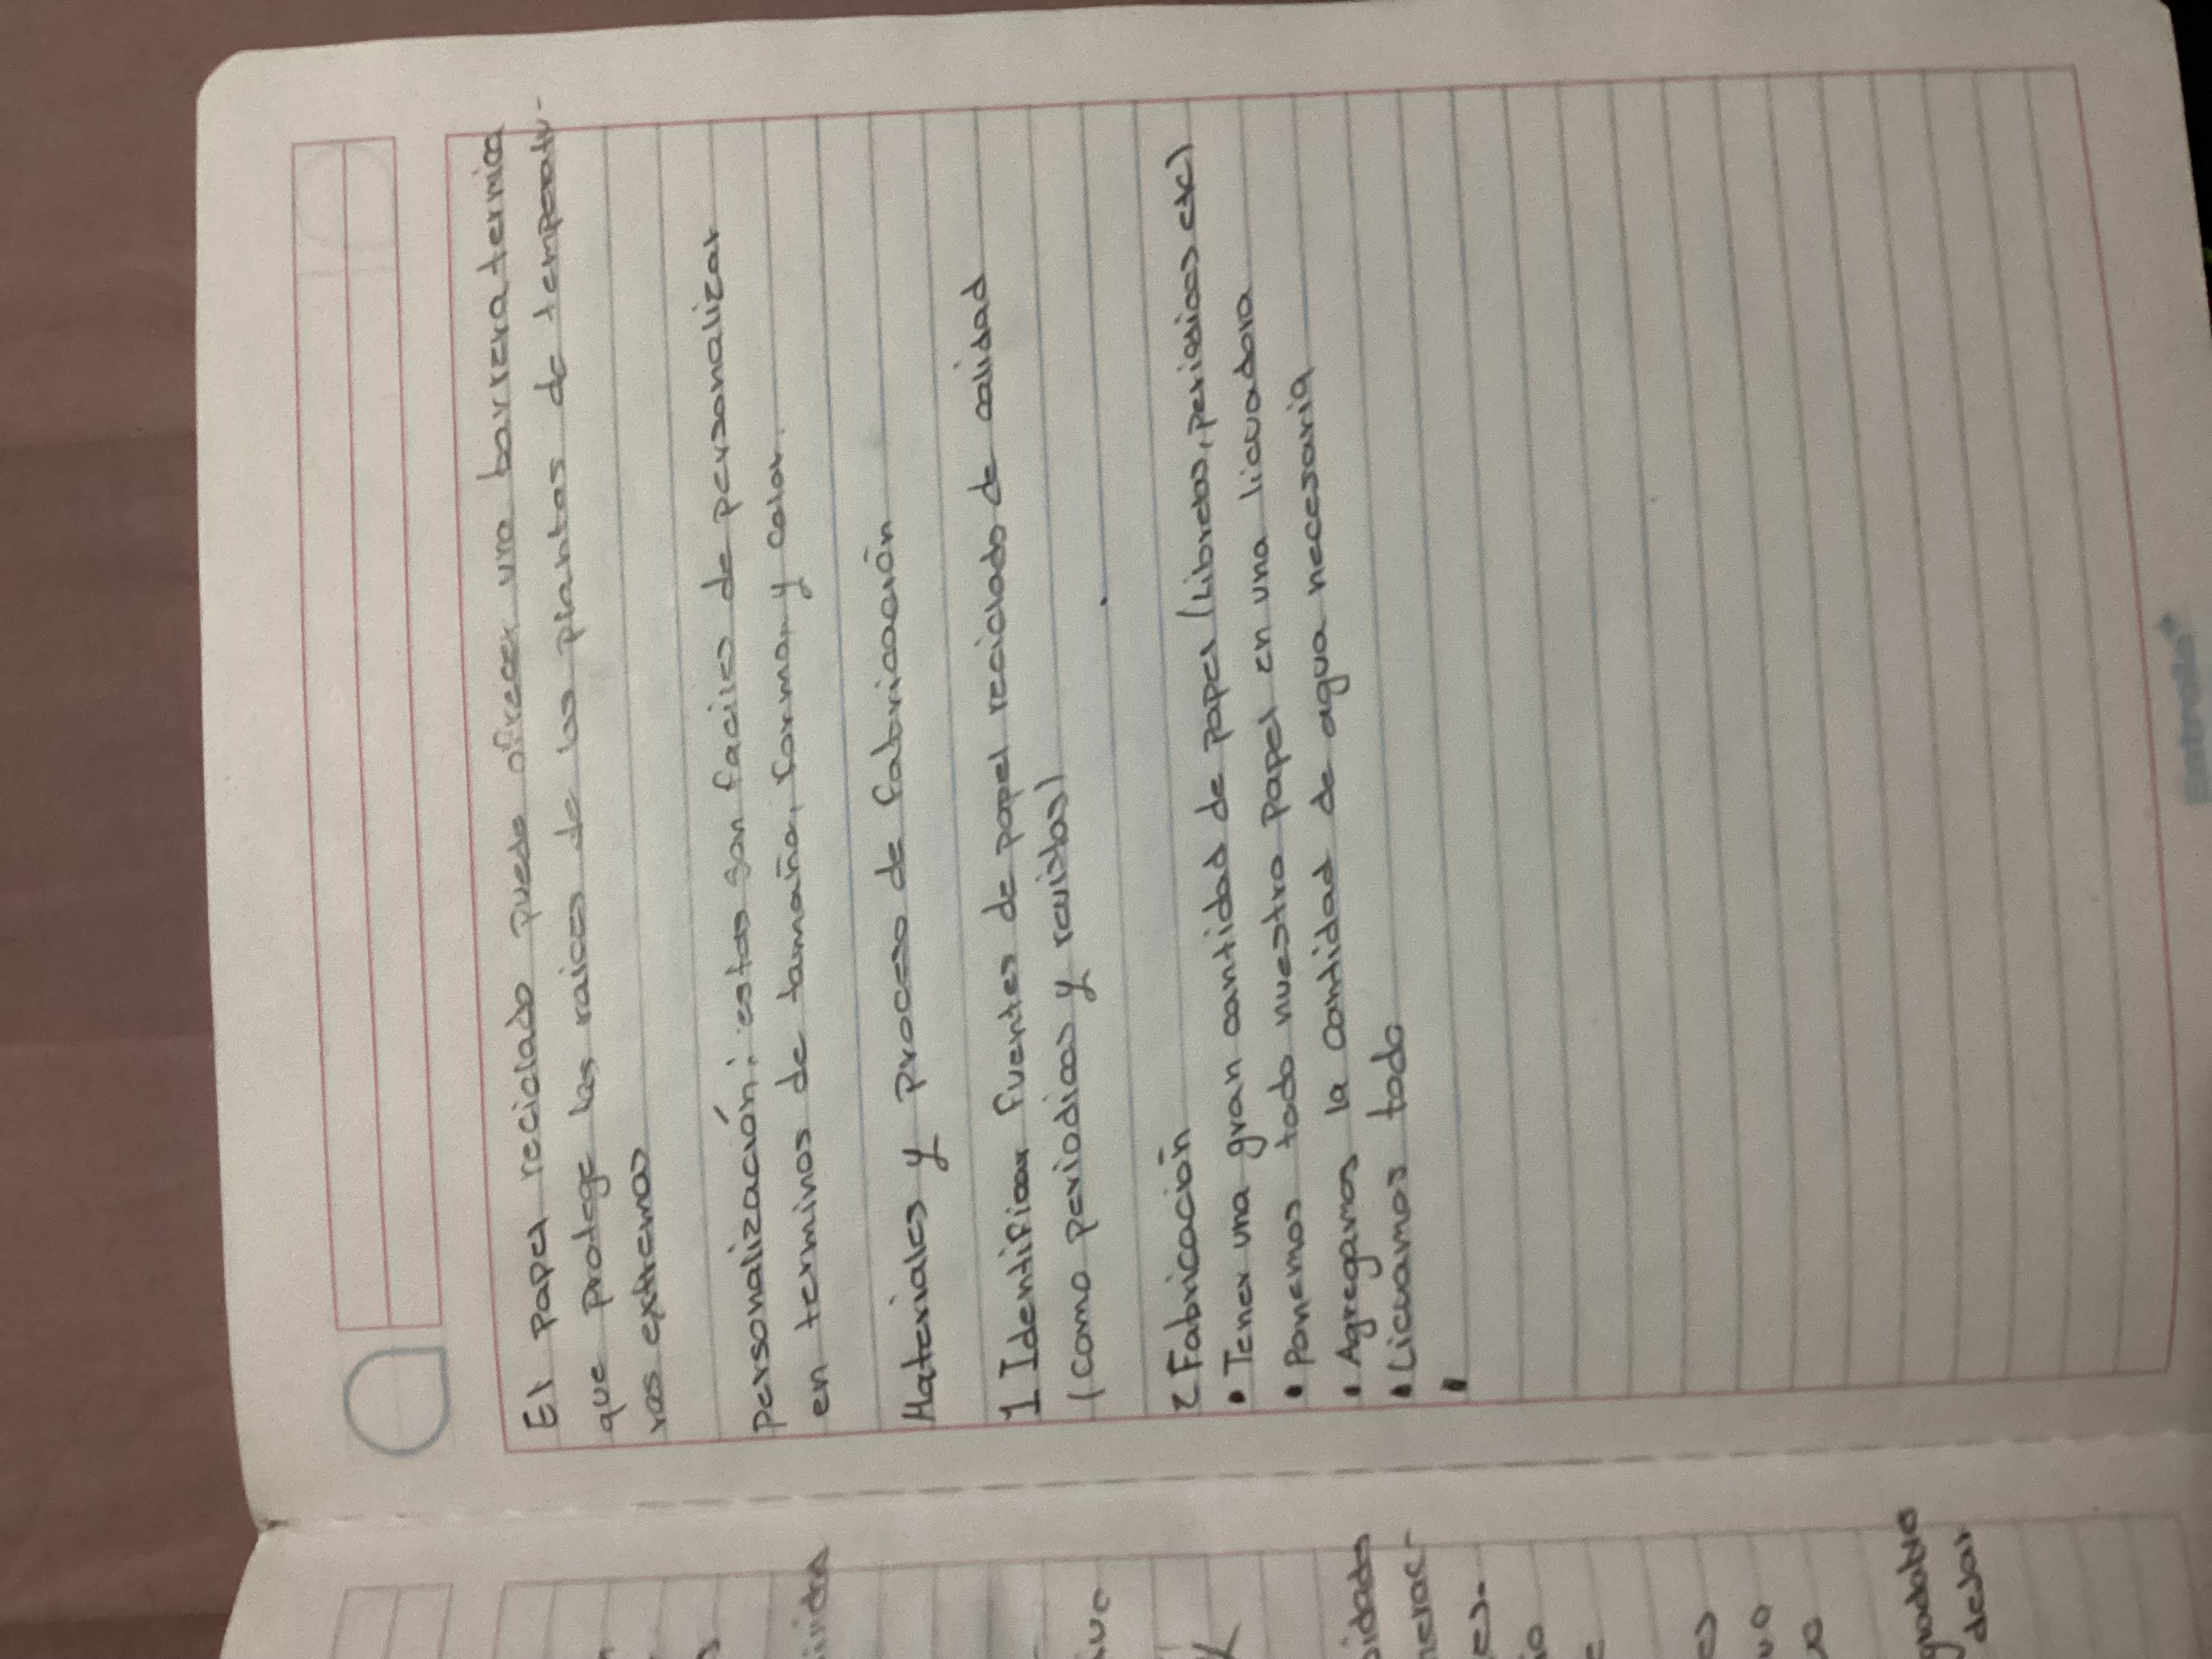 El papel reciclado puede ofrecer una barrera termica
que protege las raices de las plantas de temperatu-
ras extremas
personalización: estas son faciles de personalizar
en terminos de tamaño, forma y color.
Materiales y proceso de fabricación
1 Identificar fuentes de papel reciclado de calidad
(como periodicos y revistas)
2 Fabricación
• Tener una gran cantidad de papel (Libretas, periodicos etc)
• Ponemos todo nuestro papel en una licuadora
• Agregamos la cantidad de agua necesaria
• Licuamos todo
•
Estrella
vidades
nerac-
es.
es
gradable
dejar